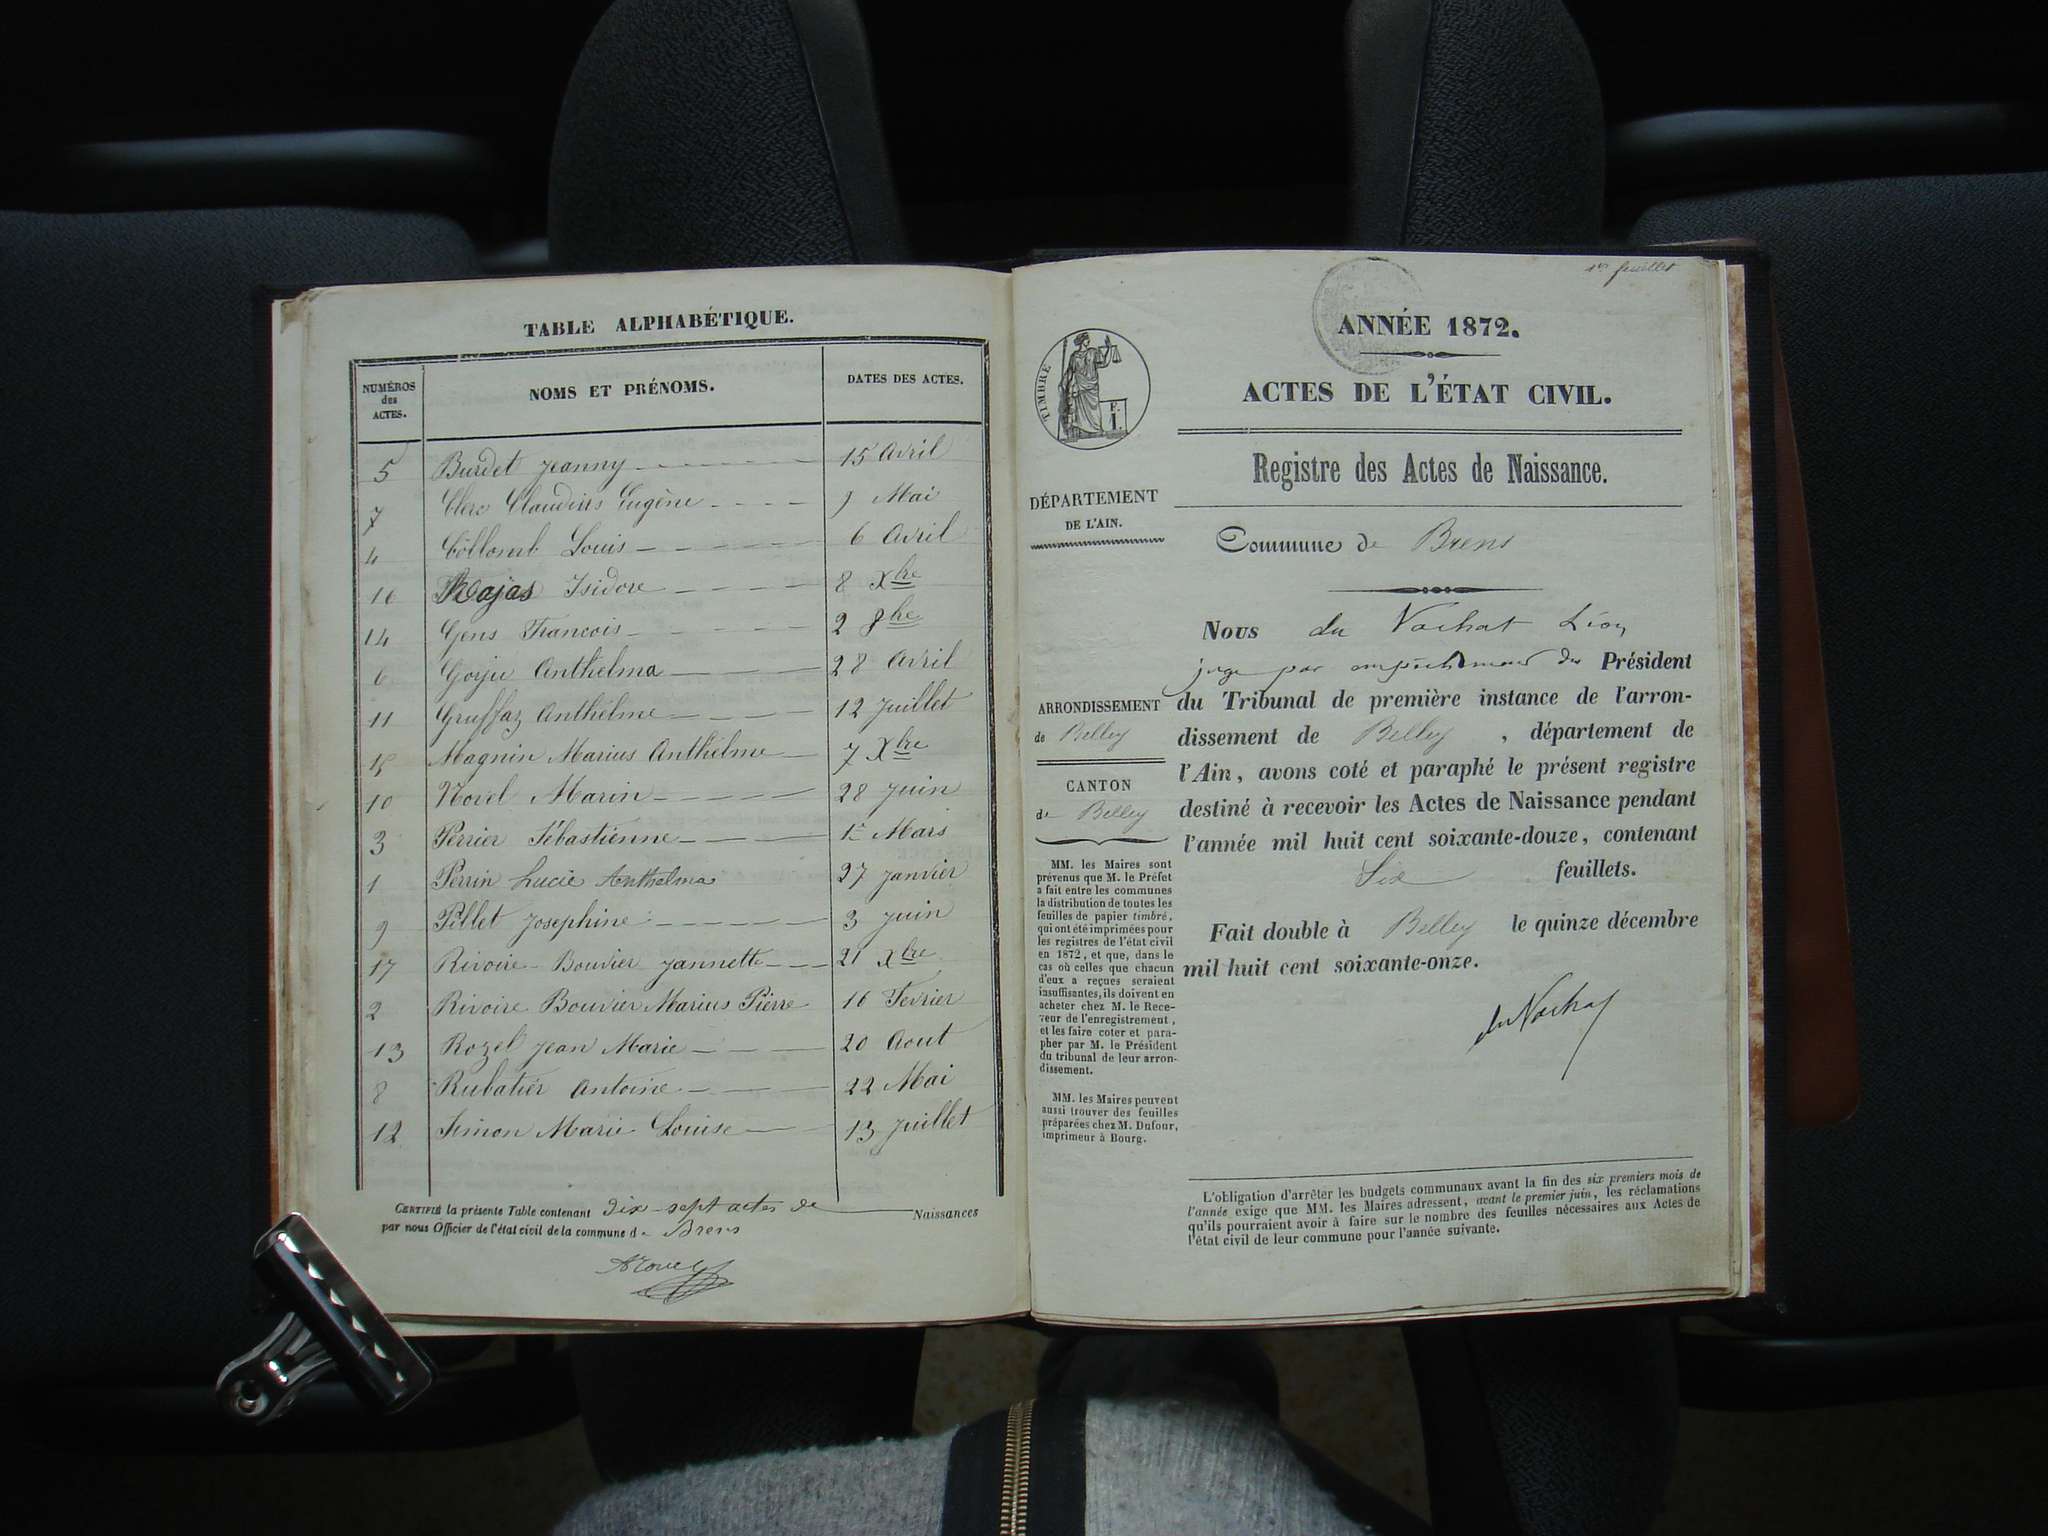 TABLE ALPHABÉTIQUE.
NUMÉROS des ACTES. NOMS ET PRÉNOMS. DATES DES ACTES.
5 Burdet Jeanny 15 Avril
7 Clerc Claudius Eugène 9 Mai
4 Collomb Louis 6 Avril
16 Rajas Isidore 8 Xbre
14 Gens Francois 2 8bre
6 Goyju Anthelma 28 Avril
11 Gruffaz Anthelme 12 Juillet
15 Magnin Marius Anthelme 7 Xbre
10 Morel Marin 28 Juin
3 Perrier Sébastienne 1er Mars
1 Perrin Lucie Anthelma 27 Janvier
9 Pillet Josephine 3 Juin
17 Rivoire-Bouvier Jannette 21 Xbre
2 Rivoire Bouvier Marius Pierre 16 Fevrier
13 Rozel Jean Marie 20 Aout
8 Rubatier Antoine 22 Mai
12 Simon Marie Louise 13 Juillet
CERTIFIÉ la présente Table contenant dix-sept actes de Naissances
par nous Officier de l'état civil de la commune de Brens
1er feuillet
ANNÉE 1872.
ACTES DE L'ÉTAT CIVIL.
Registre des Actes de Naissance.
Commune de Brens
TIMBRE
F.
1.
DÉPARTEMENT
DE L'AIN.
ARRONDISSEMENT
de Belley
CANTON
de Belley
MM. les Maires sont
prévenus que M. le Préfet
a fait entre les communes
la distribution de toutes les
feuilles de papier timbré,
qui ont été imprimées pour
les registres de l'état civil
en 1872, et que, dans le
cas où celles que chacun
d'eux a reçues seraient
insuffisantes, ils doivent en
acheter chez M. le Rece-
veur de l'enregistrement,
et les faire coter et para-
pher par M. le Président
du tribunal de leur arron-
dissement.
MM. les Maires peuvent
aussi trouver des feuilles
préparées chez M. Dufour,
imprimeur à Bourg.
Nous du Vachat Léon
juge par empêchement du Président
du Tribunal de première instance de l'arron-
dissement de Belley, département de
l'Ain, avons coté et paraphé le présent registre
destiné à recevoir les Actes de Naissance pendant
l'année mil huit cent soixante-douze, contenant
Six feuillets.
Fait double à Belley le quinze décembre
mil huit cent soixante-onze.
du Vachat
L'obligation d'arrêter les budgets communaux avant la fin des six premiers mois de
l'année exige que MM. les Maires adressent, avant le premier juin, les réclamations
qu'ils pourraient avoir à faire sur le nombre des feuilles nécessaires aux Actes de
l'état civil de leur commune pour l'année suivante.